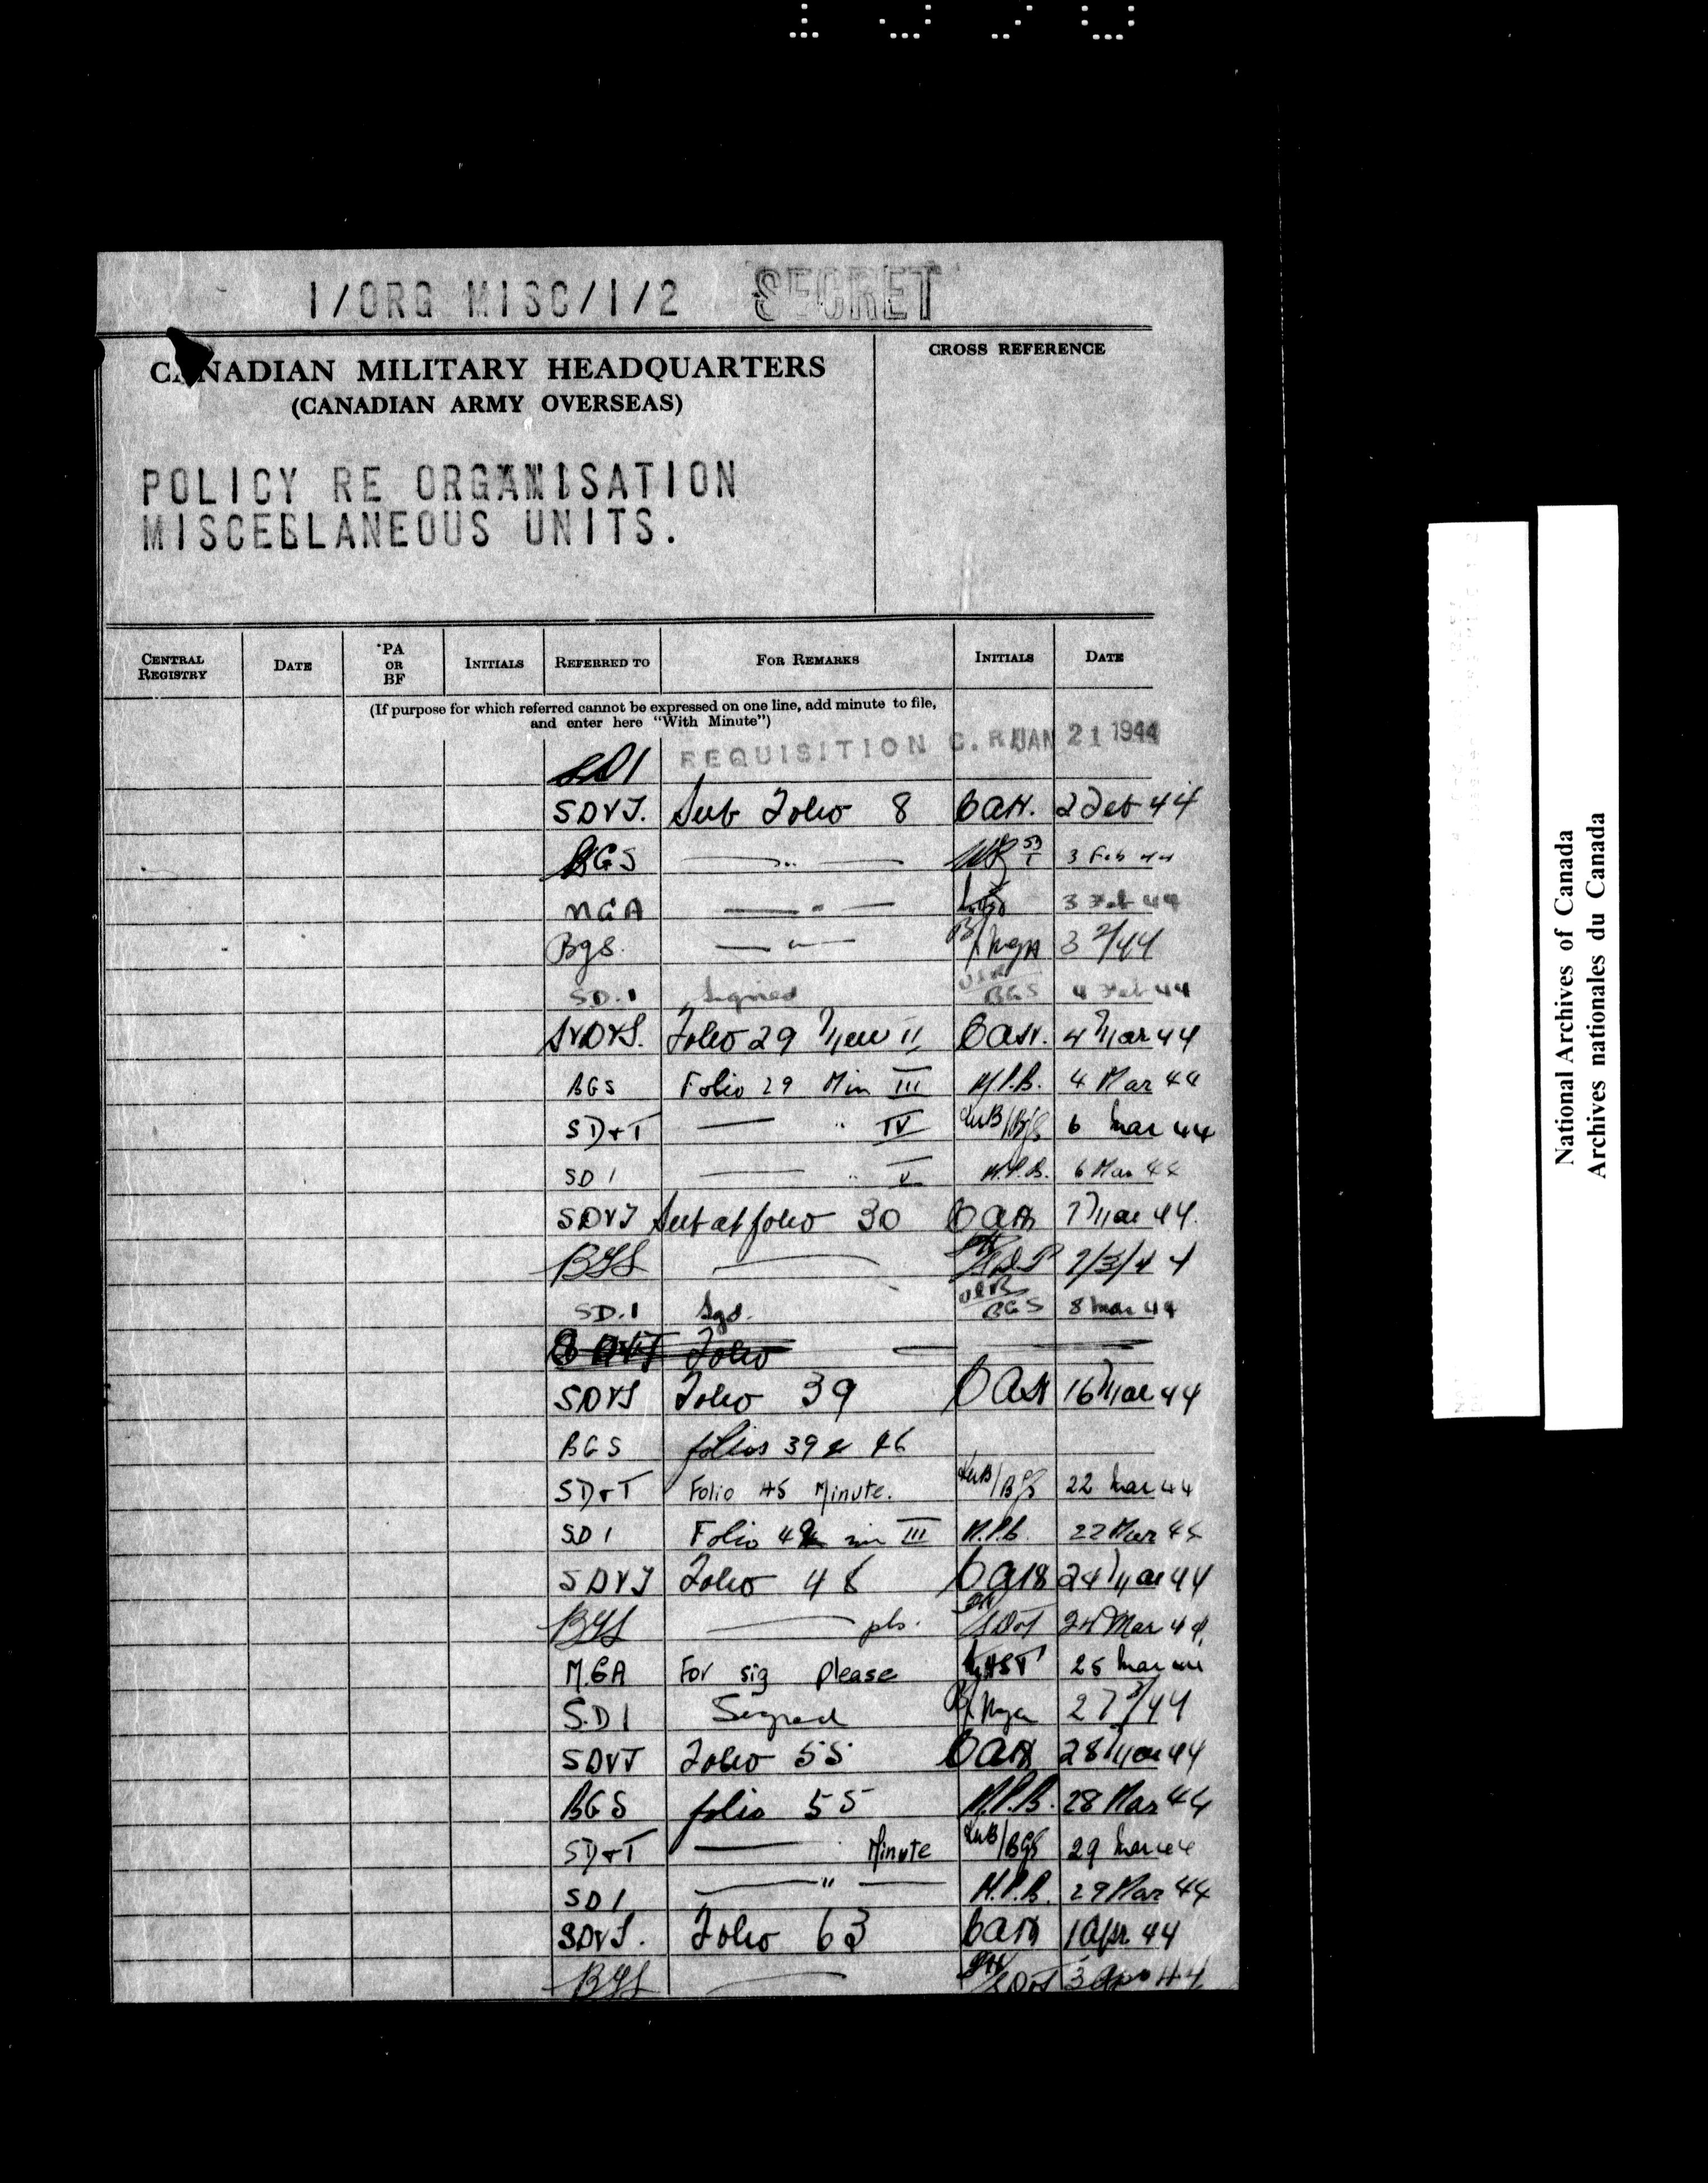 1/ORG MISC/1/2 SECRET
CANADIAN MILITARY HEADQUARTERS
(CANADIAN ARMY OVERSEAS)
CROSS REFERENCE
POLICY RE ORGANISATION
MISCELLANEOUS UNITS.
CENTRAL REGISTRY DATE *PA OR BF INITIALS REFERRED TO FOR REMARKS INITIALS DATE
(If purpose for which referred cannot be expressed on one line, add minute to file,
and enter here "With Minute")
SD1 REQUISITION C.R. JAN 21 1944
SD&T. Sub Folio 8 2 Feb 44
BGS — " — 3 Feb 44
MGA — " — 3 Feb 44
Bgs. — " — 3 2/44
SD.1 Signed BGS 4 Feb 44
Folio 29 Min II 4 Mar 44
BGS Folio 29 Min III M.P.B. 4 Mar 44
SD+T — " IV 6 Mar 44
SD1 — " V M.P.B. 6 Mar 44
SD&T Sub at folio 30 7 Mar 44.
BGS — 7/3/44
SD.1 Sgd. BGS 8 Mar 44
Folio
SD&T Folio 39 16 Mar 44
BGS folios 39 & 46
SD+T Folio 45 Minute. 22 Mar 44
SD1 Folio min III M.P.B. 22 Mar 44
SD&T Folio 48 24 Mar 44
BGS — pls. SD&T 24 Mar 44
M.G.A For sig please 25 Mar 44
S.D1 Signed 27 3/44
SD&T Folio 55 28 Mar 44
BGS folio 55 M.P.B. 28 Mar 44
SD+T — Minute 29 Mar 44
SD1 — " — M.P.B. 29 Mar 44
SD&T. Folio 63 1 Apr 44
BGS — SD&T 3 Apr 44
National Archives of Canada
Archives nationales du Canada